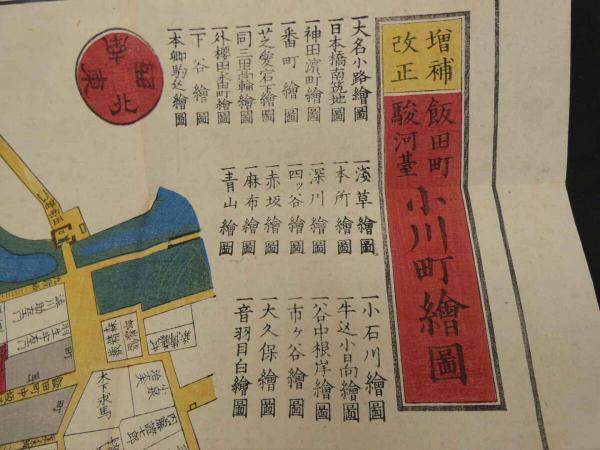 増補
改正
飯田町
駿河臺
小川町繪圖
一大名小路繪圖
一日本橋南筑地圖
一神田濱町繪圖
一番町繪圖
一芝愛宕下繪圖
一同三田高輪繪圖
一外櫻田永田町繪圖
一下谷繪圖
一本郷駒込繪圖
一淺草繪圖
一本所繪圖
一深川繪圖
一四ッ谷繪圖
一赤坂繪圖
一麻布繪圖
一青山繪圖
一小石川繪圖
一牛込小日向繪圖
一谷中根岸繪圖
一市ヶ谷繪圖
一大久保繪圖
一音羽目白繪圖
東
西
南
北
木下求馬
飯田町中坂
町
町